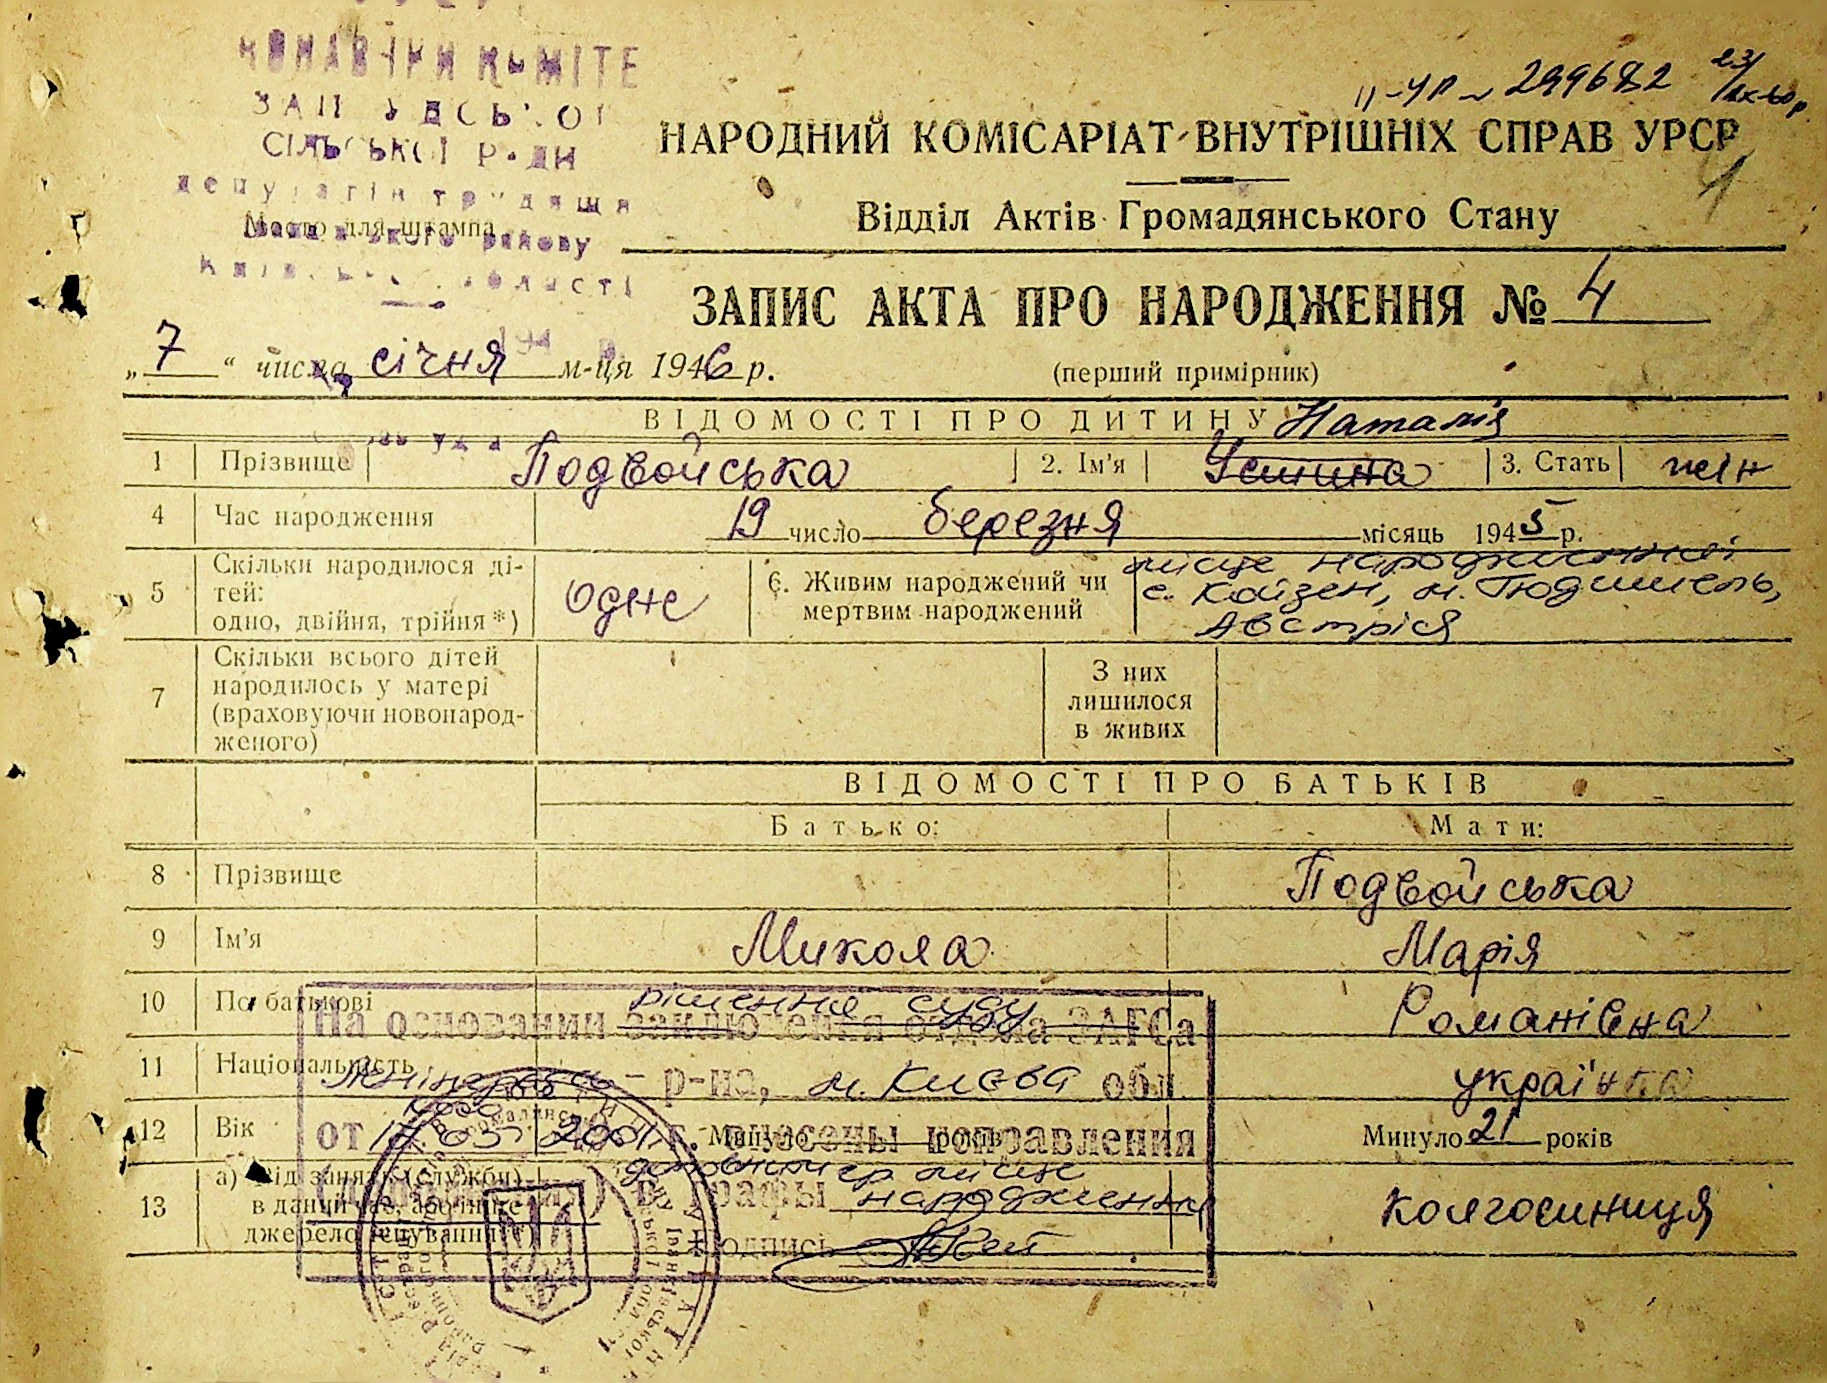 ЗАП
СІЛЬСЬКОЇ РАДИ
депутатів трудящих
Місце для штампа
району
області
II-УР № 299682
НАРОДНИЙ КОМІСАРІАТ ВНУТРІШНІХ СПРАВ УРСР
Відділ Актів Громадянського Стану
ЗАПИС АКТА ПРО НАРОДЖЕННЯ № 4
„7“ числа січня м-ця 1946 р.
(перший примірник)
ВІДОМОСТІ ПРО ДИТИНУ Наталія
1 Прізвище Подвойська 2. Ім'я Устина 3. Стать жін
4 Час народження 19 число березня місяць 1945 р.
5 Скільки народилося ді-
тей:
одно, двійня, трійня*)
одне
6. Живим народжений чи
мертвим народжений
місце народження:
с. Койзен, м.
Австрія
7 Скільки всього дітей
народилось у матері
(враховуючи новонарод-
женого)
З них
лишилося
в живих
ВІДОМОСТІ ПРО БАТЬКІВ
Батько: Мати:
8 Прізвище Подвойська
9 Ім'я Микола Марія
10 По батькові Романівна
11 Національність українка
12 Вік Минуло років Минуло 21 років
13 а) Рід занять (служби)
в даний час, або інше
джерело існування
колгоспниця
рішення суду
На основании заключения отдела ЗАГСа
р-на, м. Києва обл
от 2001 г. внесены исправления
місце
в графы народження
Подпись